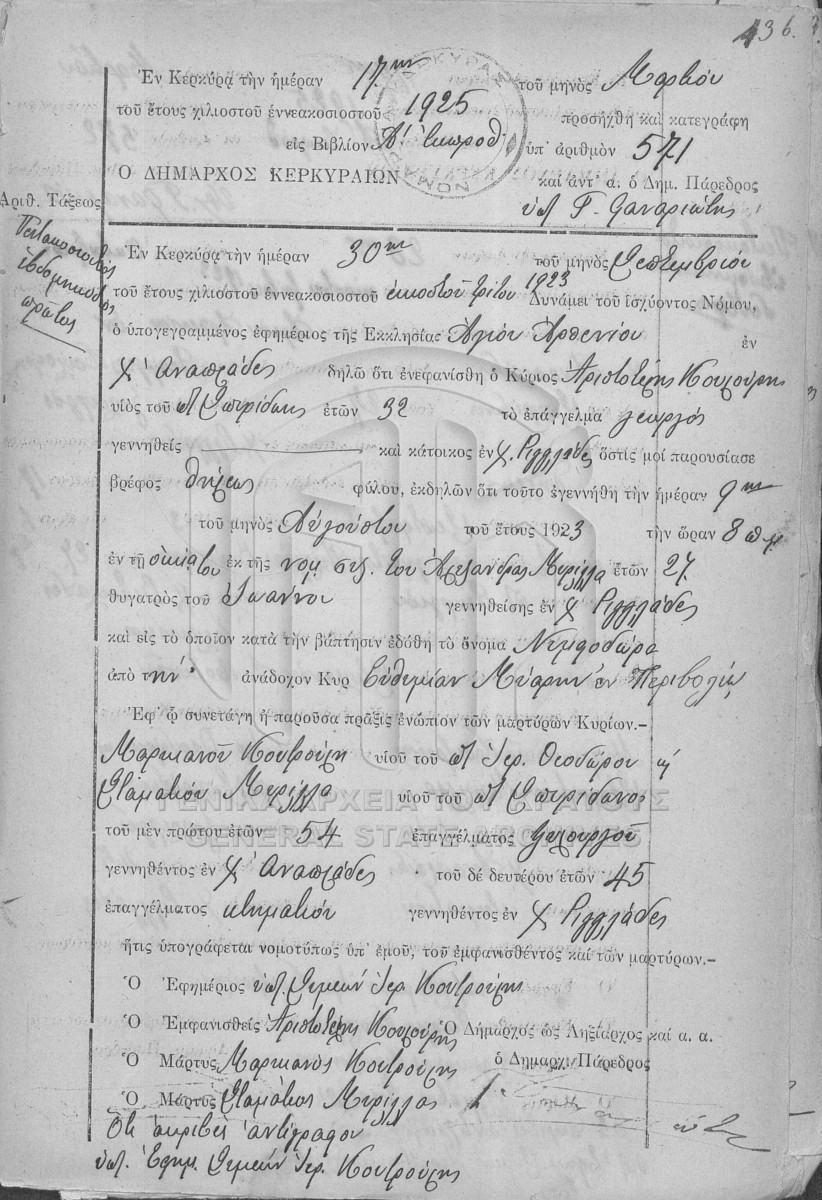 136.
Ἐν Κερκύρᾳ τὴν ἡμέραν 17ην τοῦ μηνὸς Μαρτίου
τοῦ ἔτους χιλιοστοῦ ἐννεακοσιοστοῦ 1925 προσήχθη καὶ κατεγράφη
εἰς Βιβλίον Α! ἐκπροθ ὑπ' ἀριθμὸν 571
Ο ΔΗΜΑΡΧΟΣ ΚΕΡΚΥΡΑΙΩΝ καὶ ἀντ' α. ὁ Δημ. Πάρεδρος
Ἀριθ. Τάξεως
Πεντακοσιοστὸς
ἑβδομηκοστὸς
πρῶτος
Ἐν Κερκύρᾳ τὴν ἡμέραν 30ην τοῦ μηνὸς Σεπτεμβρίου
τοῦ ἔτους χιλιοστοῦ ἐννεακοσιοστοῦ εἰκοστοῦ τρίτου 1923 Δυνάμει τοῦ ἰσχύοντος Νόμου,
ὁ ὑπογεγραμμένος ἐφημέριος τῆς Ἐκκλησίας Ἁγίου Ἀρσενίου ἐν
χ Ἀναπλάδες δηλῶ ὅτι ἐνεφανίσθη ὁ Κύριος Ἀριστοτέλης
υἱὸς τοῦ Σπυρίδωνος ἐτῶν 32 τὸ ἐπάγγελμα γεωργός
γεννηθεὶς καὶ κάτοικος ἐν χ. Ριγγλάδες ὅστις μοὶ παρουσίασε
βρέφος θήλεως φύλου, ἐκδηλῶν ὅτι τοῦτο ἐγεννήθη τὴν ἡμέραν 9ην
τοῦ μηνὸς Αὐγούστου τοῦ ἔτους 1923 τὴν ὥραν 8 π.μ
ἐν τῇ οἰκίᾳ του ἐκ τῆς νομ. συζ. του Ἀλεξάνδρας Μυρίλλα ἐτῶν 27.
θυγατρὸς τοῦ Ἰωάννου γεννηθείσης ἐν χ Ριγγλάδες
καὶ εἰς τὸ ὁποῖον κατὰ τὴν βάπτησιν ἐδόθη τὸ ὄνομα Νυμφοδώρα
ἀπὸ τὴν ἀνάδοχον Κυρ Εὐθυμίαν ἐν Περιβολίῳ
Ἐφ' ᾧ συνετάγη ἡ παροῦσα πρᾶξις ἐνώπιον τῶν μαρτύρων Κυρίων.–
Μαρκιανοῦ Κουτρούλη υἱοῦ τοῦ Ἱερ. Θεοδώρου ϗ
Σταματίου Μυρίλλα υἱοῦ τοῦ Σπυρίδωνος
ΓΕΝΙΚΑ ΑΡΧΕΙΑ ΤΟΥ ΚΡΑΤΟΥΣ
GENERAL STATE ARCHIVES
τοῦ μὲν πρώτου ἐτῶν 54 ἐπαγγέλματος ξυλουργοῦ
γεννηθέντος ἐν χ Ἀναπλάδες τοῦ δέ δευτέρου ἐτῶν 45
ἐπαγγέλματος κτηματίου γεννηθέντος ἐν χ Ριγγλάδες
ἥτις ὑπογράφεται νομοτύπως ὑπ' ἐμοῦ, τοῦ ἐμφανισθέντος καὶ τῶν μαρτύρων.–
Ὁ Ἐφημέριος Συμεών Ἱερ. Κουτρούλης
Ὁ Ἐμφανισθεὶς Ἀριστοτέλης Ὁ Δήμαρχος ὡς Ληξίαρχος καὶ α. α.
Ὁ Μάρτυς Μαρκιανὸς Κουτρούλης ὁ Δημαρχ. Πάρεδρος
Ὁ Μάρτυς Σταμάτιος Μυρίλλας
Ὅτι ἀκριβὲς ἀντίγραφον
Ἐφημ. Συμεών Ἱερ. Κουτρούλης